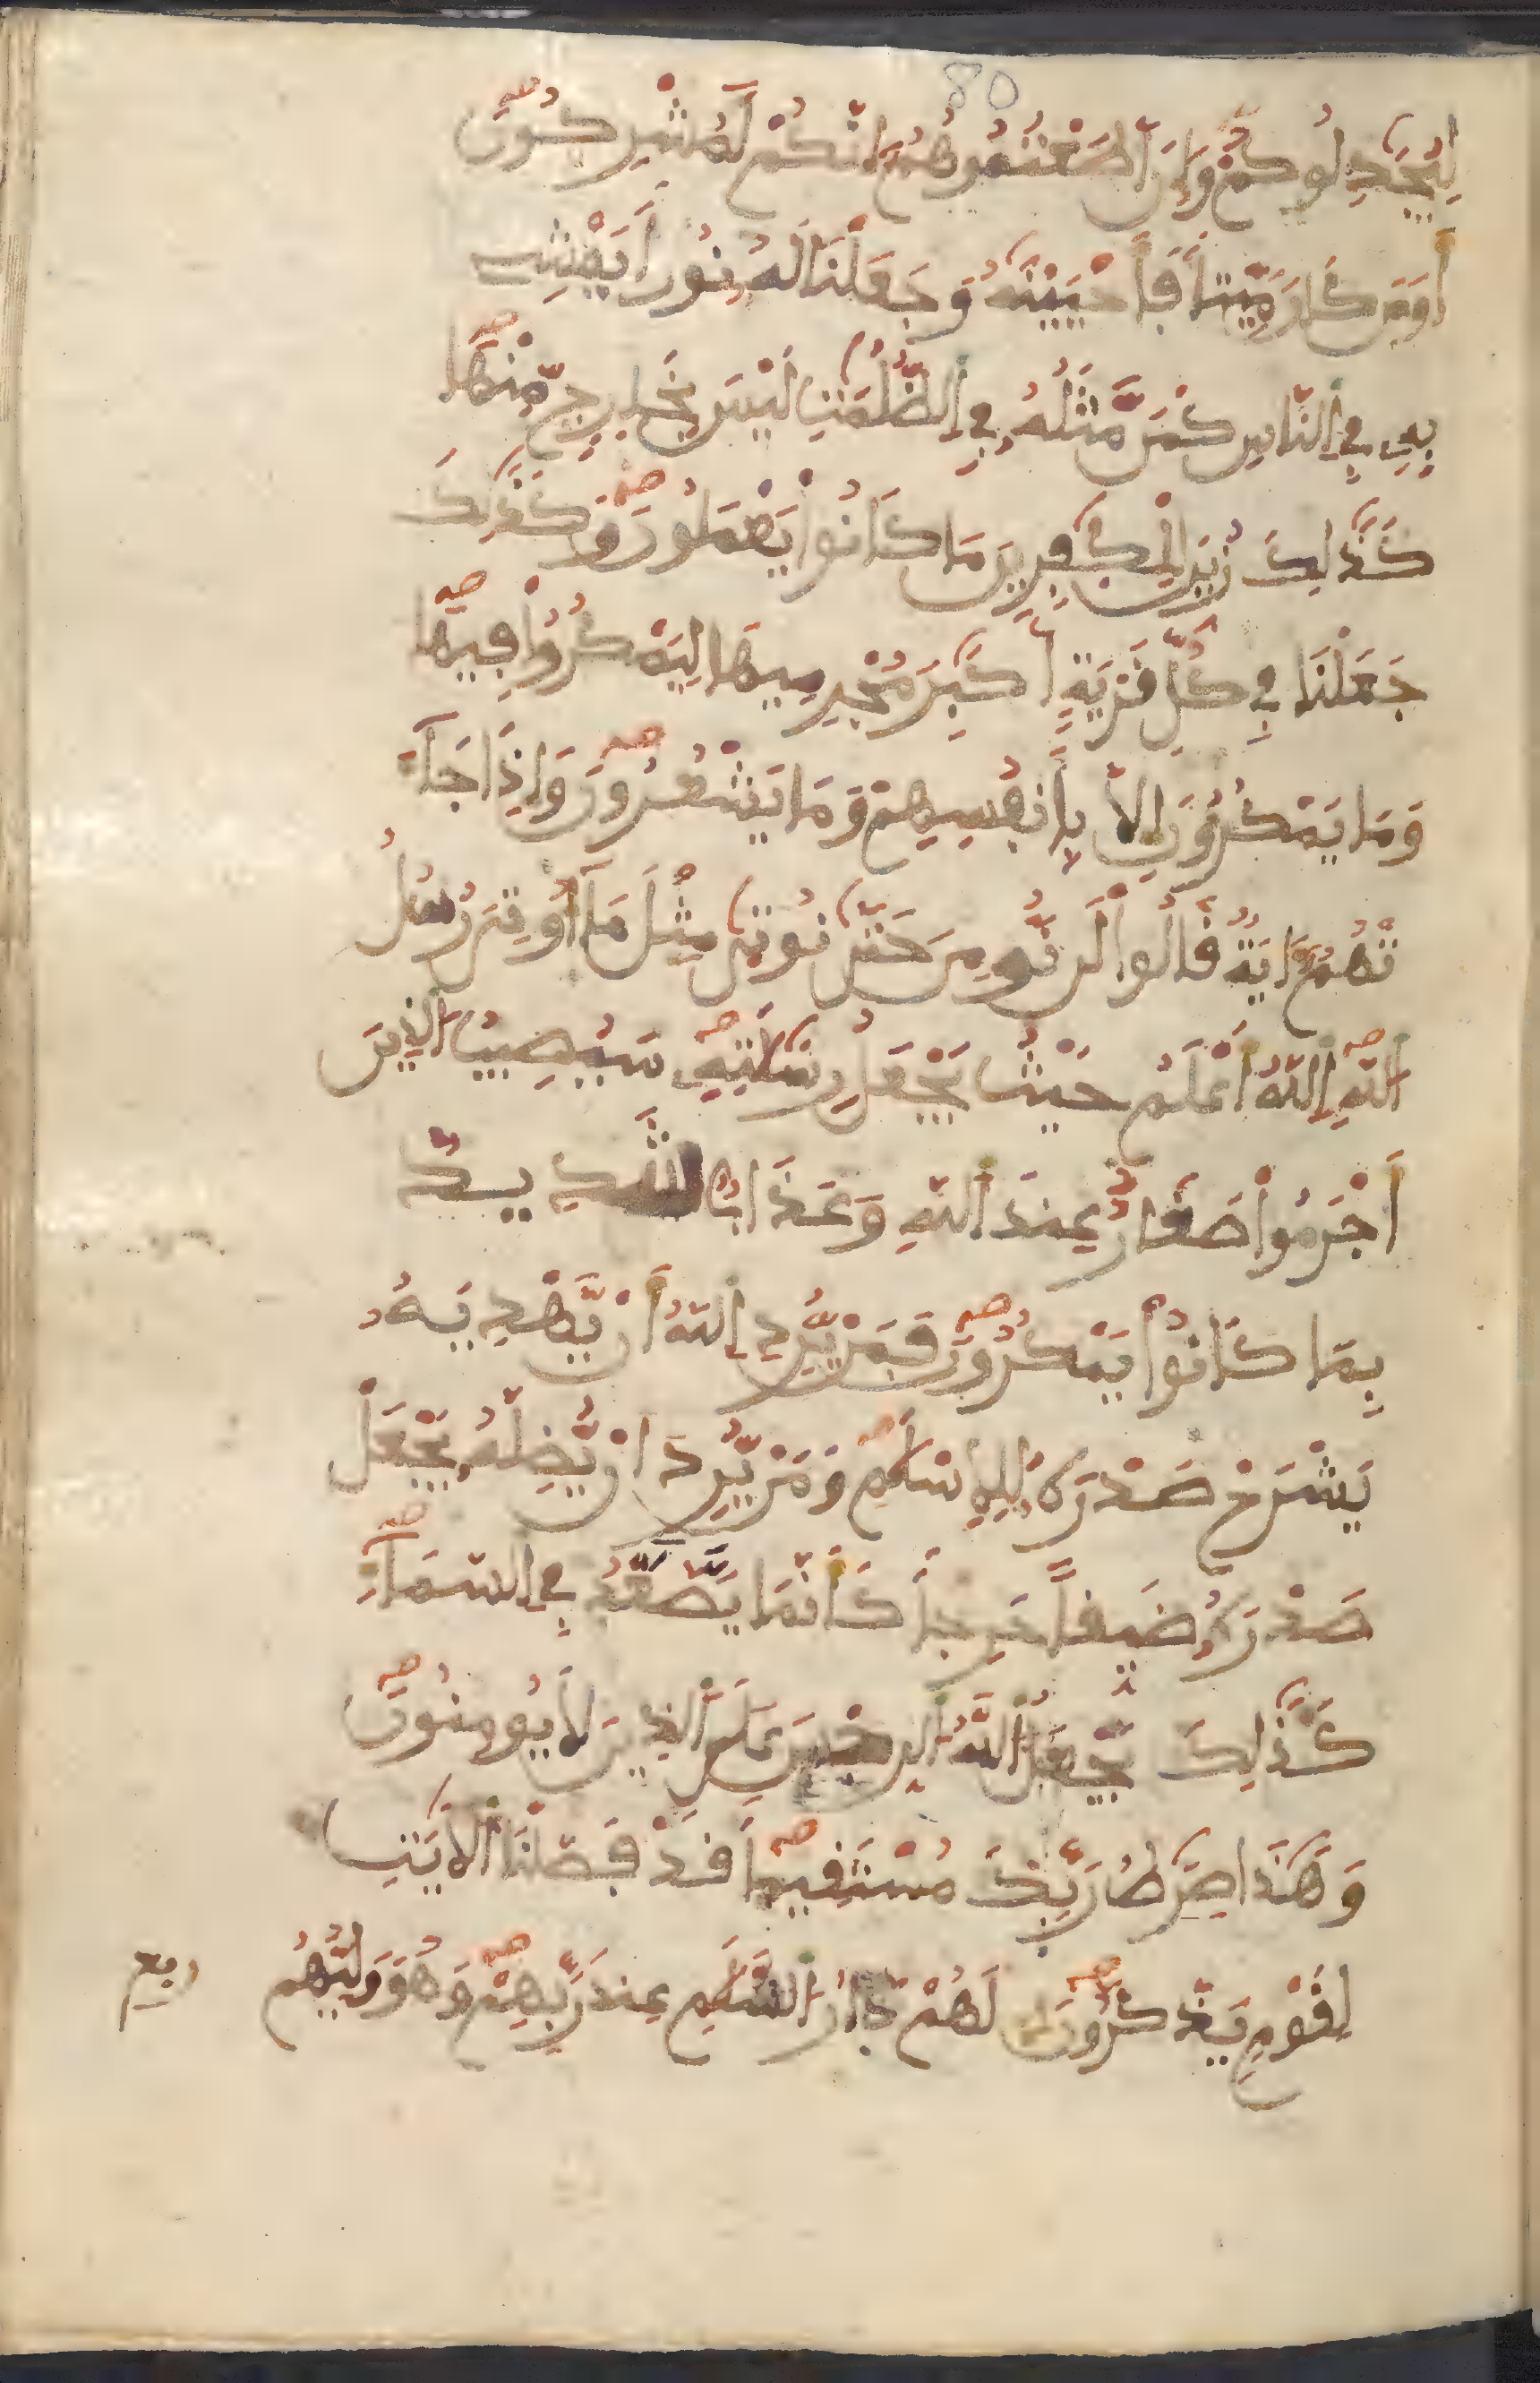 80
لِيُجَٰدِلُوكُمْ وَإِنَ اَطَعْتُمُوهُمُۥٓ إِنَّكُمْ لَمُشْرِكُونَ
أَوَمَن كَانَ مَيِّتاً فَأَحْيَيْنَٰهُ وَجَعَلْنَا لَهُۥ نُوراً يَمْشِے
بِهِۦ فِے اِ۬لنَّاسِ كَمَن مَّثَلُهُۥ فِے اِ۬لظُّلُمَٰتِ لَيْسَ بِخَارِجٖ مِّنْهَا
كَذَٰلِكَ زُيِّنَ لِلْكَٰفِرِينَ مَا كَانُوا۟ يَعْمَلُونَ وَكَذَٰلِكَ
جَعَلْنَا فِے كُلِّ قَرْيَةٍ اَكَٰبِرَ مُجْرِمِيهَا لِيَمْكُرُوا۟ فِيهَا
وَمَا يَمْكُرُونَ إِلَّا بِأَنفُسِهِمْ وَمَا يَشْعُرُونَ وَإِذَا جَآءَ
تْهُمُۥٓ ءَايَةٞ قَالُوا۟ لَن نُّومِنَ حَتَّىٰ نُوتَىٰ مِثْلَ مَآ أُوتِىَ رُسُلُ
اُ۬للَّهِ اِ۬للَّهُ أَعْلَمُ حَيْثُ يَجْعَلُ رِسَٰلَٰتِهِۦ سَيُصِيبُ اُ۬لذِينَ
أَجْرَمُوا۟ صَغَارٌ عِندَ اَ۬للَّهِ وَعَذَابٞ شَدِيدُۢ
بِمَا كَانُوا۟ يَمْكُرُونَ فَمَنْ يُّرِدِ اِ۬للَّهُ أَنْ يَّهْدِيَهُۥ
يَشْرَحْ صَدْرَهُۥ لِلِاسْلَٰمِ وَمَنْ يُّرِدَ اَنْ يُّضِلَّهُۥ يَجْعَلْ
صَدْرَهُۥ ضَيِّقاً حَرِجاً كَأَنَّمَا يَصَّعَّدُ فِے اِ۬لسَّمَآءِ
كَذَٰلِكَ يَجْعَلُ اُ۬للَّهُ اُ۬لرِّجْسَ عَلَى اَ۬لذِينَ لَا يُومِنُونَ
وَهَٰذَا صِرَٰطُ رَبِّكَ مُسْتَقِيماً قَدْ فَصَّلْنَا اَ۬لَايَٰتِ
لِقَوْمٖ يَذَّكَّرُونَ لَهُمْ دَارُ اُ۬لسَّلَٰمِ عِندَ رَبِّهِمْ وَهُوَ وَلِيُّهُم
ربع